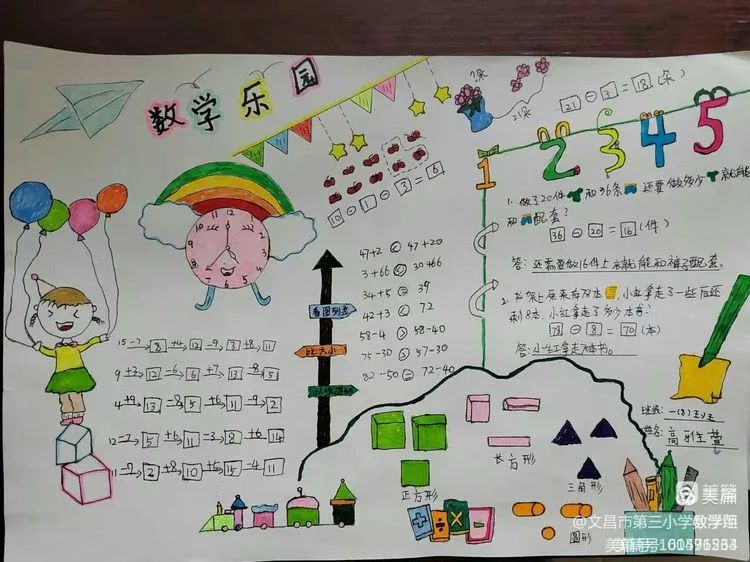 数学乐园
2朵
21朵
21 - 3 = 18 (朵)
1 2 3 4 5
10 - 1 - 3 = 6
1. 做了20件和36条还要做多少就能
和配套?
36 - 20 = 16 (件)
答:还需要做16件上衣就能和裤子配套。
2. 书架上原来有78本,小红拿走了一些后还
剩8本,小红拿走了多少本书?
78 - 8 = 70 (本)
47+2 < 47+20
3+66 < 30+66
34+5 = 39
42+3 < 72
58-4 > 58-40
75-30 > 57-30
82-50 = 72-40
看图列式
比大小
12 1 2 3 4 5 6 7 8 9 10 11
15 -7 8 +4 12 -9 3 +8 11
9 +3 12 -6 6 +7 13 -8 5
4 +9 13 -8 5 +6 11 -9 2
12 -7 5 +6 11 -3 8 +6 14
11 -9 2 +8 10 +5 15 -4 11
班级:一(8)班
姓名:高雅萱
正方形
长方形
三角形
圆形
美篇
@文昌市第三小学数学组